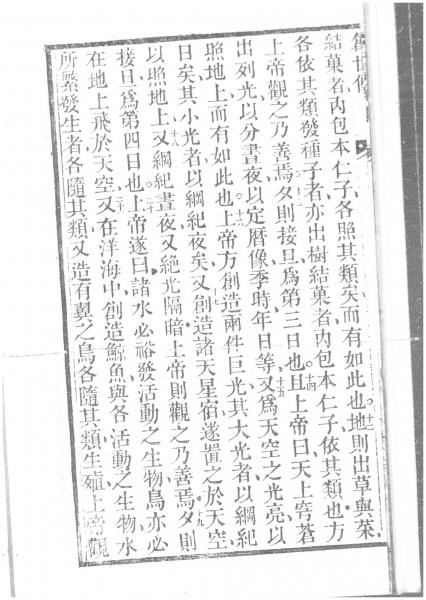 創世傳
結菓者內包本仁子各照其類矣而有如此也地則出草與菜
各依其類發種子者亦出樹結菓者內包本仁子依其類也方
上帝觀之乃善焉夕則接旦爲第三日也且上帝曰天上穹蒼
出列光以分晝夜以定曆像季時年日等又爲天空之光亮以
照地上而有如此也上帝方創造兩件巨光其大光者以綱紀
日矣其小光者以綱紀夜矣又創造諸天星宿遂置之於天空
以照地上又綱紀晝夜又絕光隔暗上帝則觀之乃善焉夕則
接旦爲第四日也上帝遂曰諸水必裕發活動之生物鳥亦必
在地上飛於天空又在洋海中創造鯨魚與各活動之生物水
所繁發生者各隨其類又造有翼之鳥各隨其類生殖上帝觀